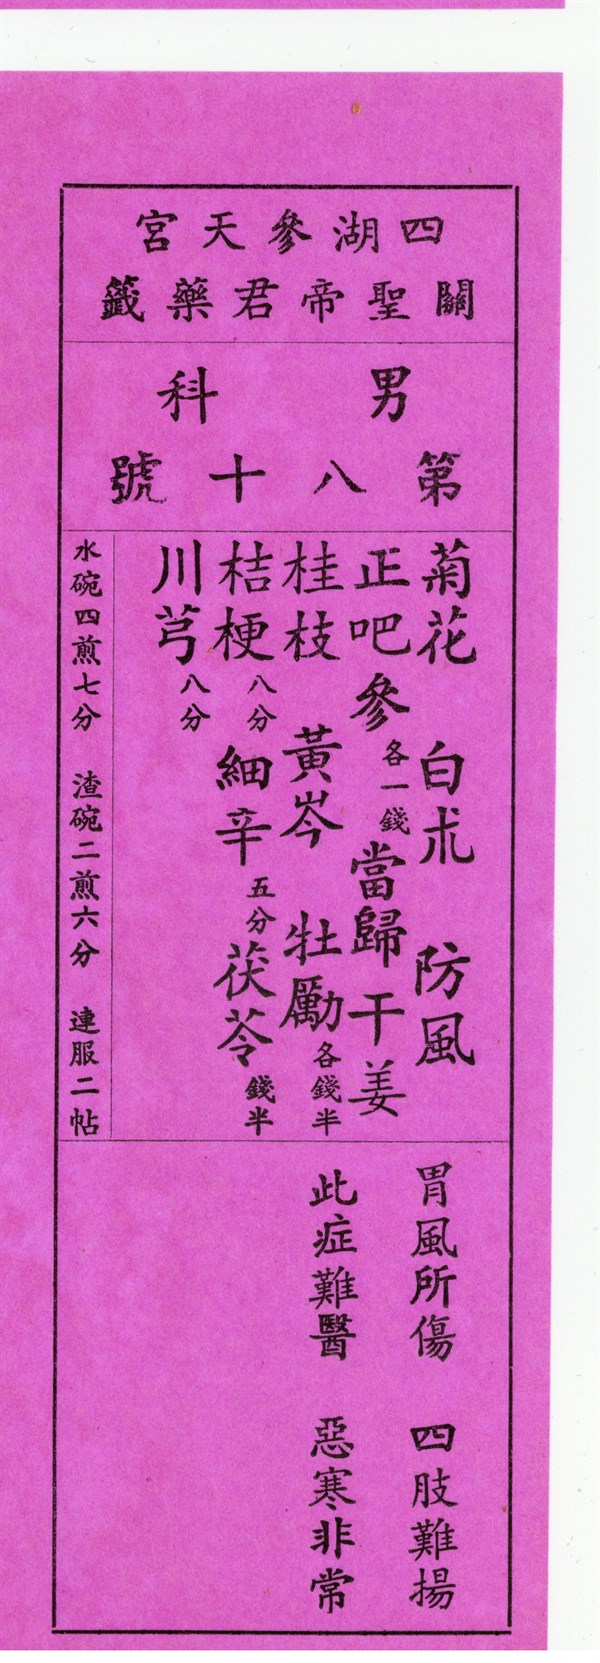 四湖參天宮
關聖帝君藥籤
男科
第八十號
菊花 白朮 防風
正吧參各一錢 當歸 干姜
桂枝 黃岑 牡勵各錢半
桔梗八分 細辛五分 茯苓錢半
川芎八分
水碗四煎七分 渣碗二煎六分 連服二帖
胃風所傷 四肢難揚
此症難醫 惡寒非常